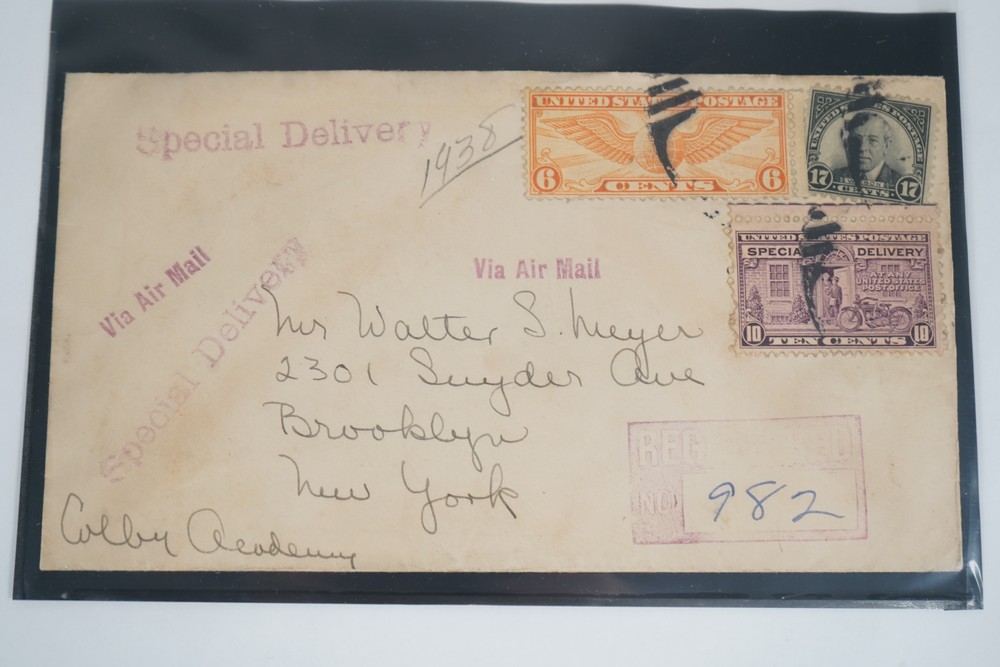 Special Delivery
1938
UNITED STATES POSTAGE
6 CENTS 6
UNITED STATES POSTAGE
WILSON
17 CENTS 17
UNITED STATES POSTAGE
SPECIAL DELIVERY
AT ANY
UNITED STATES
POST OFFICE
10 TEN CENTS 10
Via Air Mail
Via Air Mail
Special Delivery
Mr Walter S. Meyer
2301 Snyder Ave
Brooklyn
New York
REGISTERED
NO. 982
Colby Academy